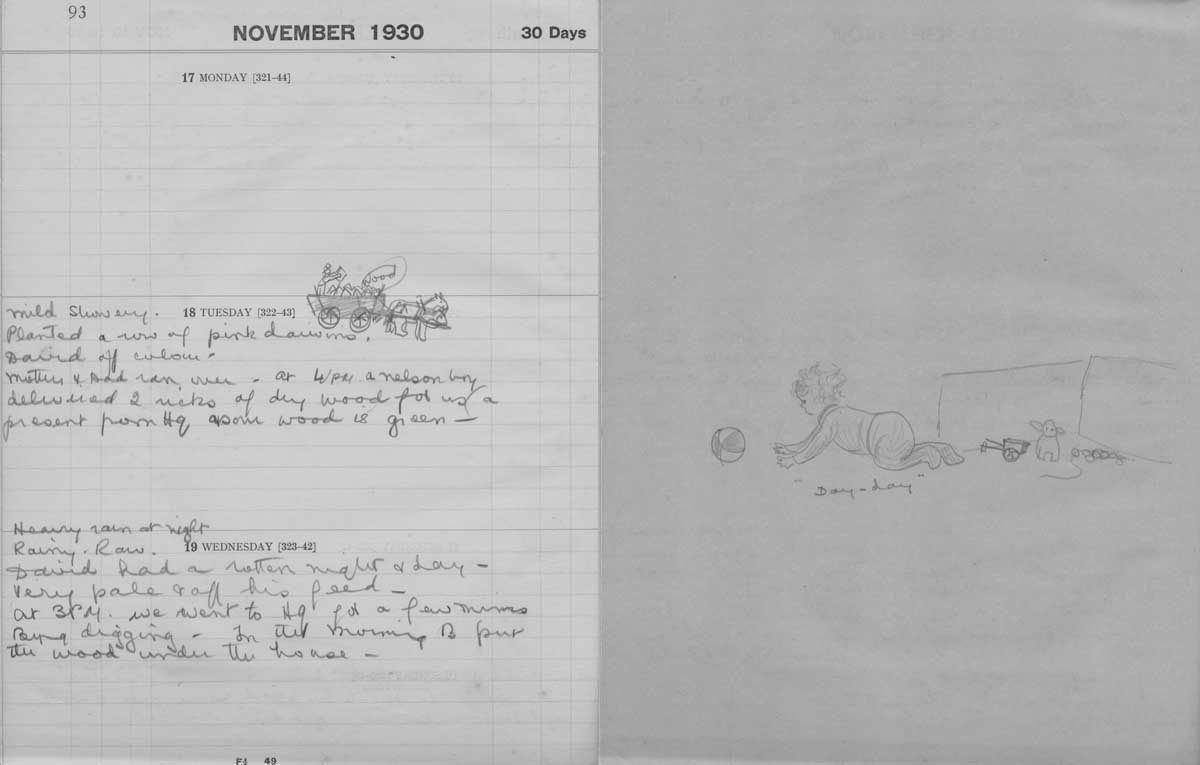 93
NOVEMBER 1930
30 Days
17 MONDAY [321–44]
wood
Mild Showery.
18 TUESDAY [322–43]
Planted a row of pink darwins.
David off colour.
Mother & Dad ran over - at 4 PM. a nelson boy
delivered 2 ricks of dry wood for us a
present from Hq as our wood is green —
Heavy rain at night
Rainy. Raw.
19 WEDNESDAY [323–42]
David had a rotten night & day —
Very pale & off his feed —
at 3 PM. we went to Hq for a few mums
digging — In the morning B put
the wood under the house —
F4 49
"Day-Day"